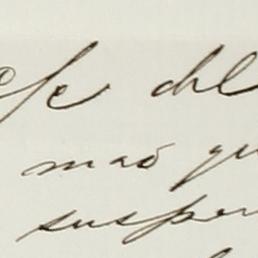 efe del
mas qu
suspen